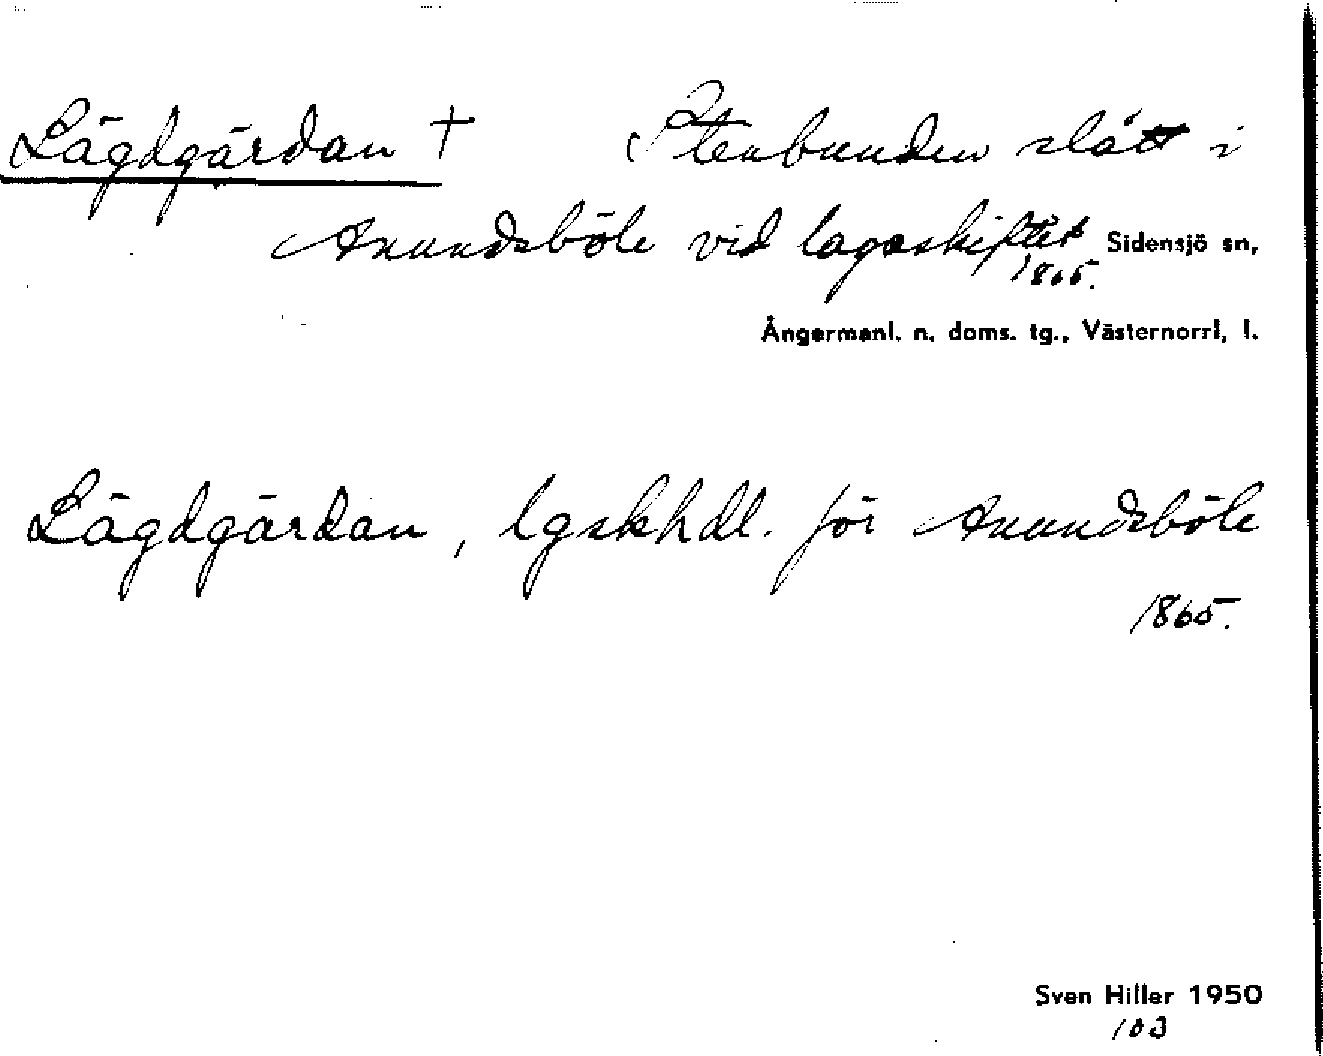 Lägdgärdan † Stenbunden slått i
Anundsböle vid lagaskiftet Sidensjö sn,
1865.
Ångermanl. n. doms. tg., Västernorrl, l.
Lägdgärdan, lgskhdl. för Anundsböle
1865.
Sven Hiller 1950
103